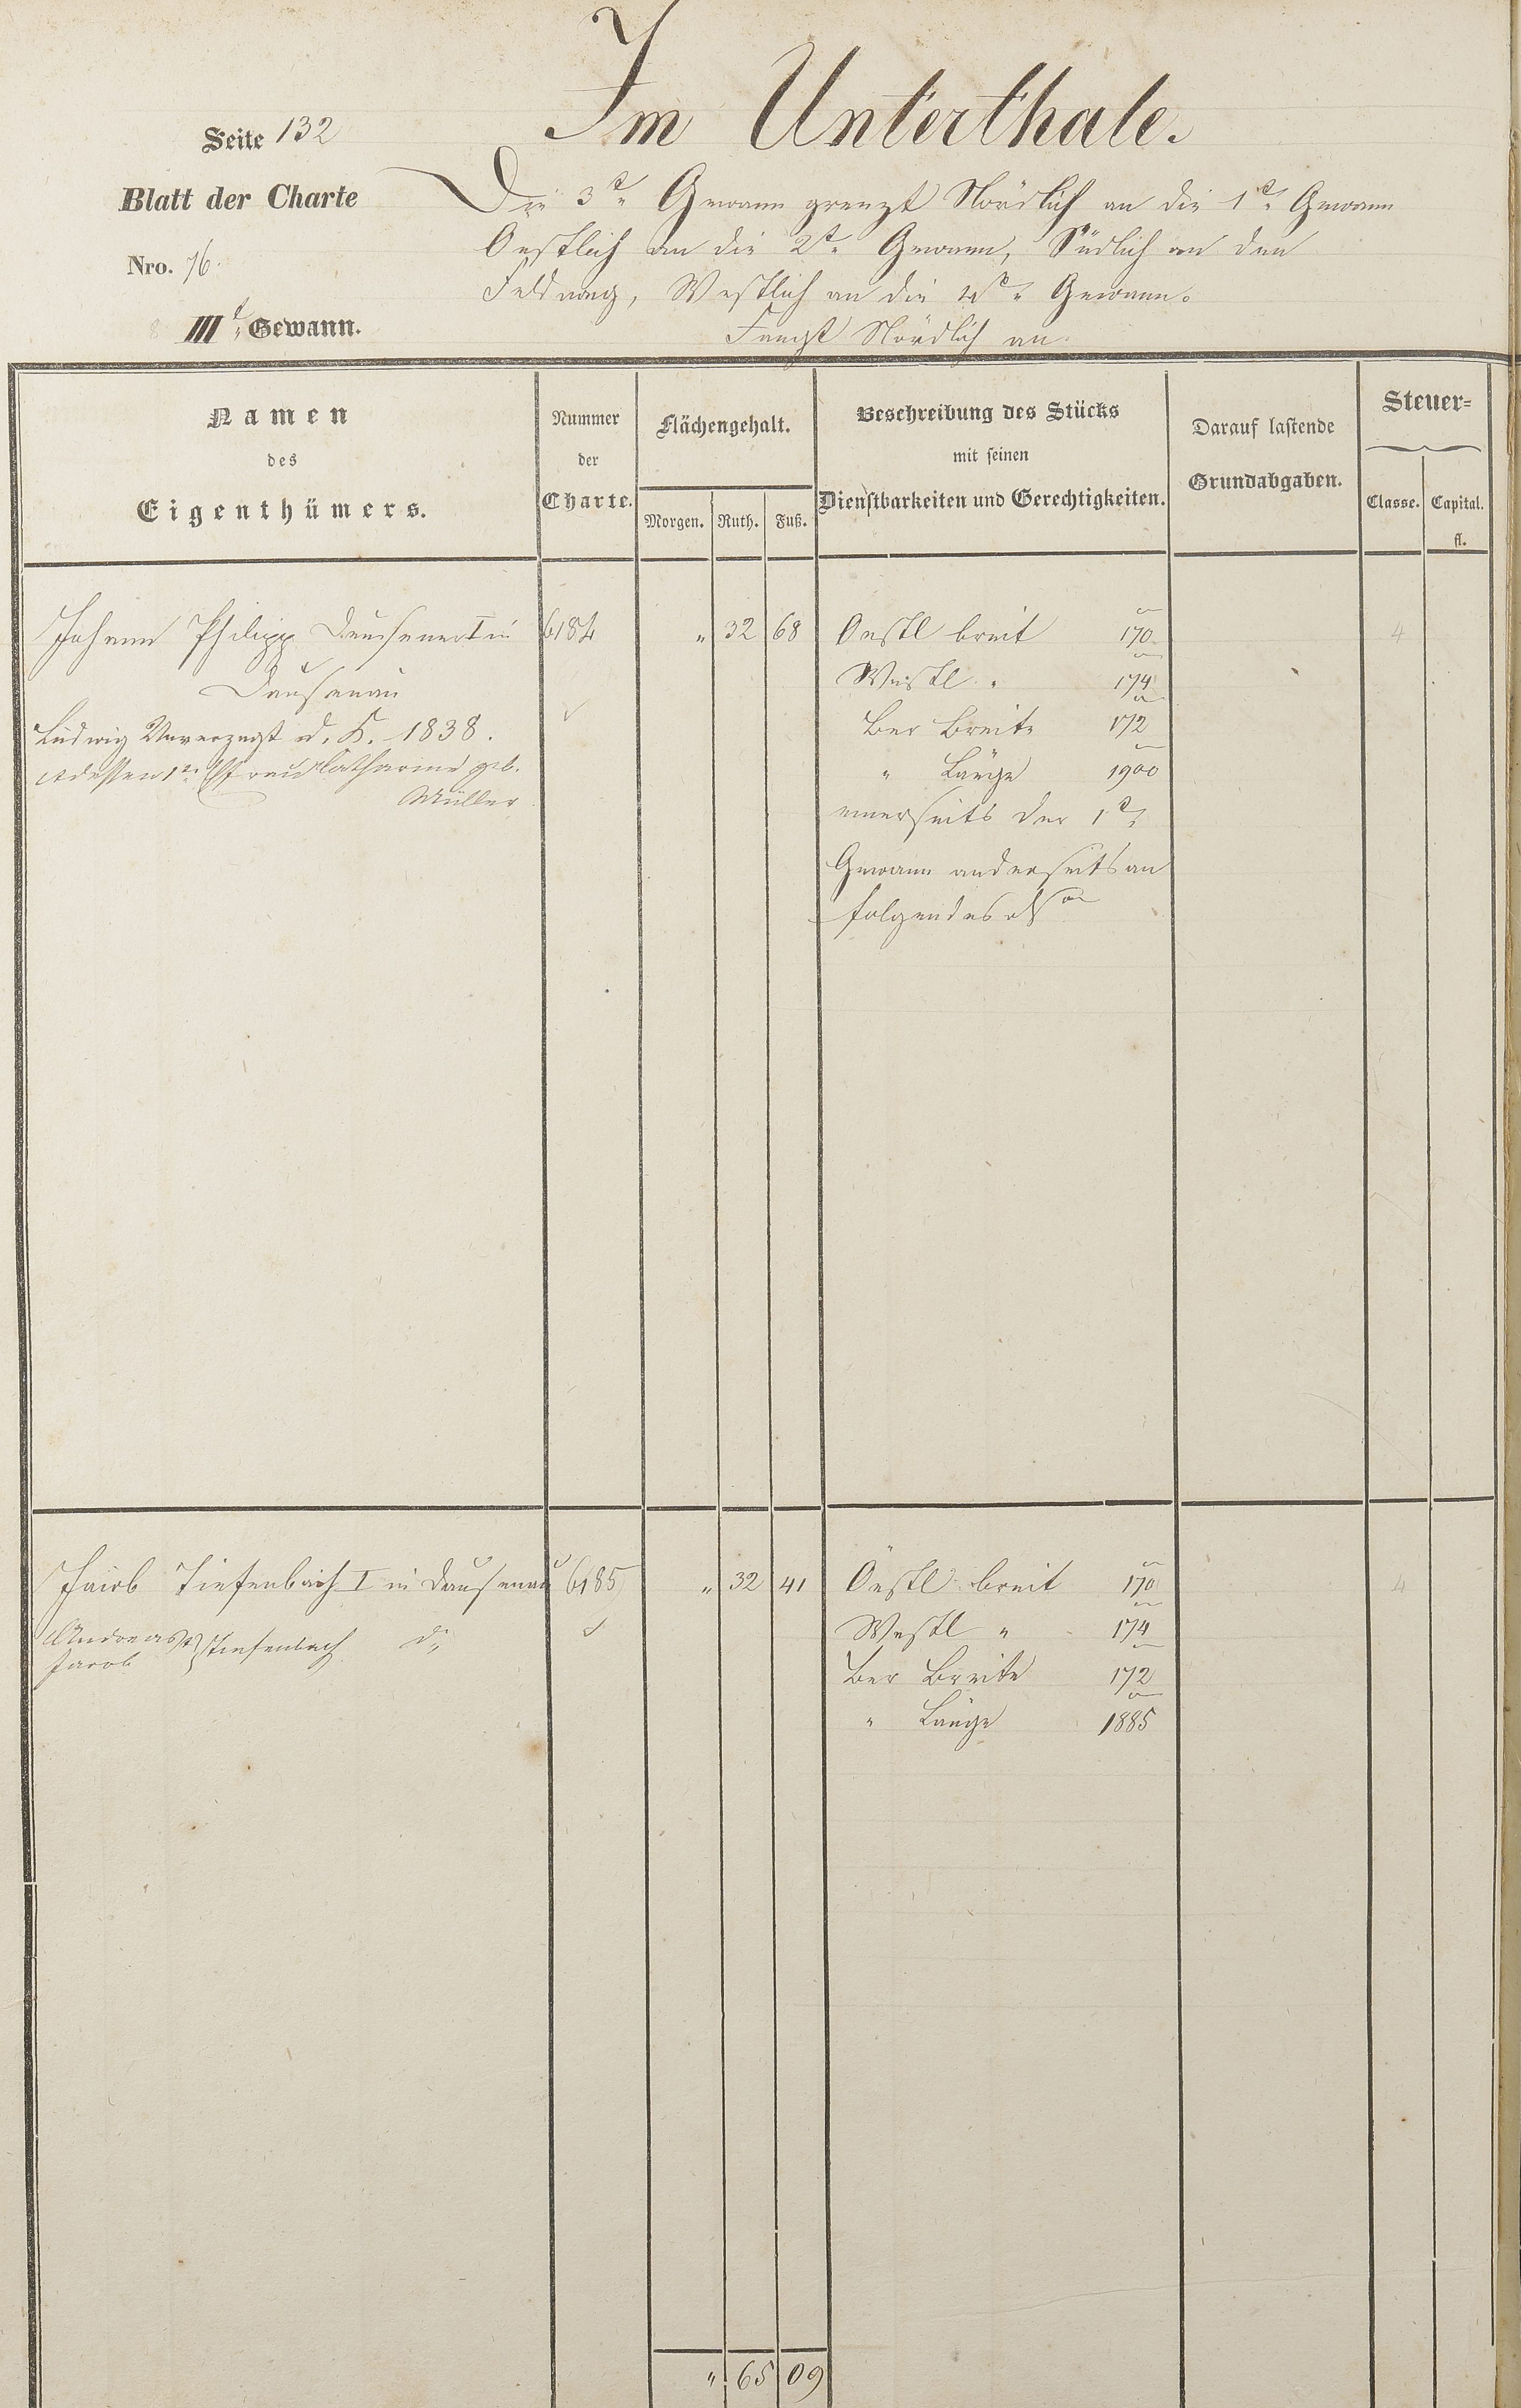 Im Unterthale.
Seite 132
Blatt der Charte
Nro. 76.
IIIt. Gewann.
Die 3te Gewann grenzt Nördlich an die 1te Gewann
Oestlich an die 2te Gewann, Südlich an den
Feldweg, Westlich an die 4te Gewann.
Fangt Nördlich an.
Namen
des
Eigenthümers.
Nummer
der
Charte.
Flächengehalt.
Morgen. Ruth. Fuß.
Beschreibung des Stücks
mit seinen
Dienstbarkeiten und Gerechtigkeiten.
Darauf lastende
Grundabgaben.
Steuer=
Classe. Capital.
fl.
Johann Philipp I in 6184 " 32 68 Oestl breit 170 4
Dausenau Westl " 174
Ludwig Unverzagt d. K. 1838. Ber Breite 172
Catharine geb. " Länge 1900
Müller
einerseits der 1te
Gewann anderseits an
folgendes
Jacob Tiefenbach I in Dausenau 6185 " 32 41 Oestl breit 170 4
Andreas Tiefenbach d. Westl " 174
Jacob
Ber Breite 172
" Länge 1885
" 65 09